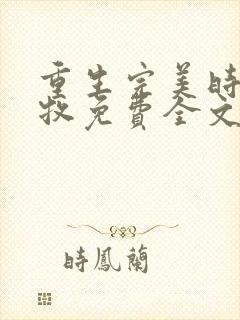 重生完美時
牧免費全文
時鳳蘭